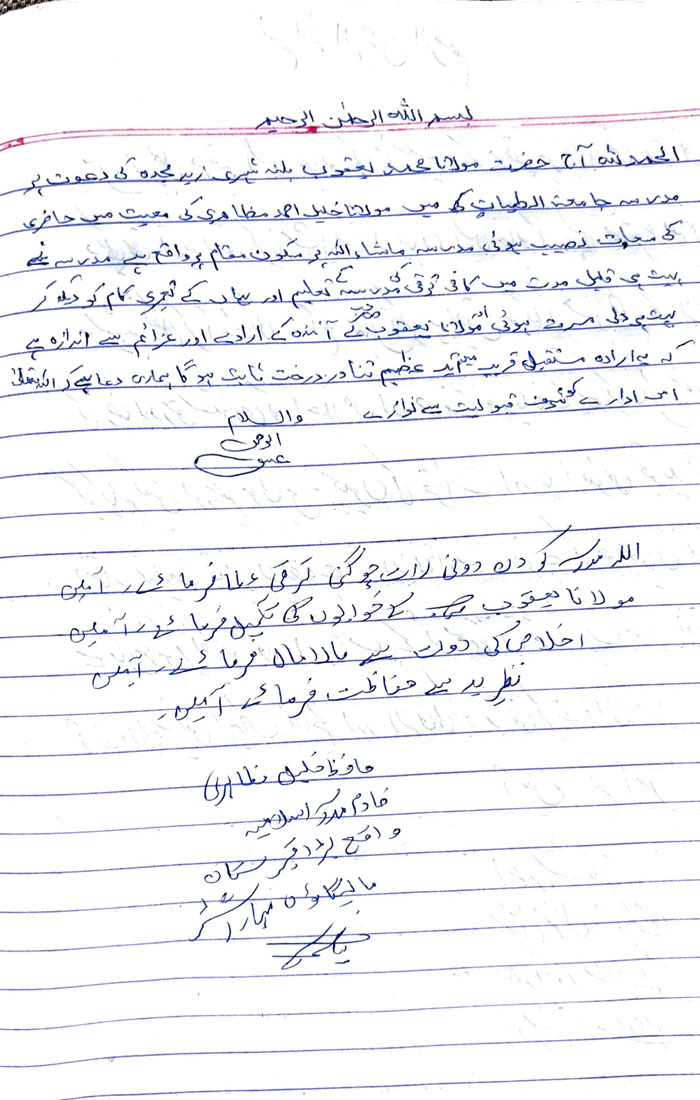 بسم اللہ الرحمٰن الرحیم
الحمد للہ آج حضرت مولانا محمد یعقوب بلند شہری زید مجدہ کی دعوت پر
مدرسہ جامعۃ الطیبات میں مولانا خلیل احمد مظاہری کی معیت میں حاضری
کی سعادت نصیب ہوئی مدرسہ ماشاء اللہ پر سکون مقام پر واقع ہے مدرسہ نے
بہت ہی قلیل مدت میں کافی ترقی کی مدرسہ کے تعلیم اور یہاں کے تعمیری کام کو دیکھ کر
بہت ہی دلی مسرت ہوئی اور مولانا یعقوب کے آئندہ کے ارادے اور عزائم سے اندازہ ہے
کہ یہ ادارہ مستقبل قریب میں ایک عظیم تناور درخت ثابت ہوگا ہماری دعا ہے کہ اللہ تعالیٰ
اس ادارے کو شرف قبولیت سے نوازے
والسلام
اللہ مدرسہ کو دن دونی رات چوگنی ترقی عطا فرمائے۔ آمین
مولانا یعقوب کے خوابوں کی تکمیل فرمائے۔ آمین
اخلاص کی دولت سے مالامال فرمائے۔ آمین
نظرِ بد سے حفاظت فرمائے آمین۔
حافظ خلیل مظاہری
خادم مدرسہ اسلامیہ
واقع بڑا قبرستان
مالیگاؤں مہاراشٹر